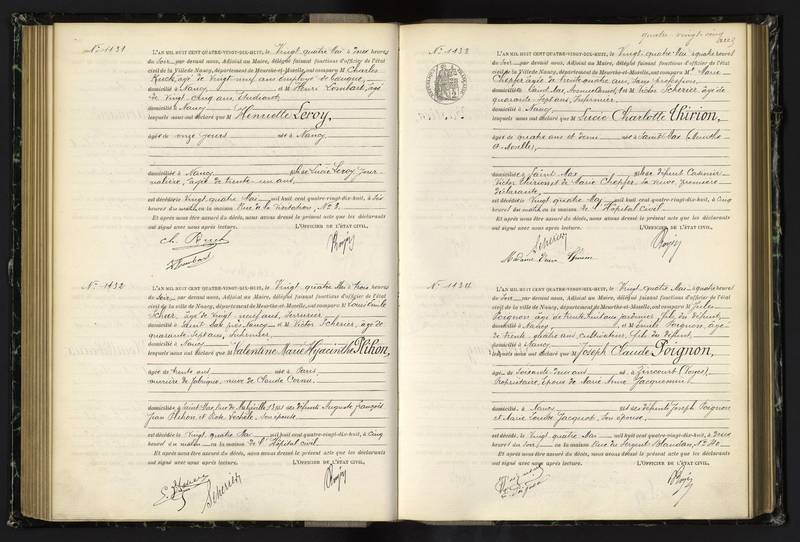 No 1131
L'AN MIL HUIT CENT QUATRE-VINGT-DIX-HUIT, le Vingt quatre Mai à deux heures
du Soir, par devant nous, Adjoint au Maire, délégué faisant fonctions d'officier de l'état
civil de la Ville de Nancy, département de Meurthe-et-Moselle, ont comparu M Charles
âgé de Vingt neuf ans employé de banque,
domicilié à Nancy et M Henri Lombard, âgé
de Vingt cinq ans, Étudiant,
domicilié à Nancy
lesquels nous ont déclaré que M Henriette Leroy,
âgée de onze jours née à Nancy
domiciliée à Nancy fille de Lucie Leroy Jour-
nalière, âgée de trente un ans,
est décédée le Vingt quatre Mai mil huit cent quatre-vingt-dix-huit, à Six
heures du matin, en la maison Rue de la Visitation, No 2.
Et après nous être assuré du décès, nous avons dressé le présent acte que les déclarants
ont signé avec nous après lecture. L'OFFICIER DE L'ÉTAT CIVIL,
Lombard
No 1132
L'AN MIL HUIT CENT QUATRE-VINGT-DIX-HUIT, le Vingt quatre Mai à trois heures
du Soir, par devant nous, Adjoint au Maire, délégué faisant fonctions d'officier de l'état
civil de la ville de Nancy, département de Meurthe-et-Moselle, ont comparu M Louis Emile
âgé de Vingt neuf ans, Serrurier,
domicilié à Saint Max près Nancy et M Victor Scherier, âgé de
quarante Sept ans, Infirmier,
domicilié à Nancy
lesquels nous ont déclaré que M Valentine Marie Hyacinthe Plihon,
âgée de trente ans née à Paris
ouvrière de fabrique, veuve de Claude Cornu,
domiciliée à Saint-Max, Rue de fille des défunts Auguste François
Jean Plihon et Rose son épouse
est décédée le Vingt quatre Mai mil huit cent quatre-vingt-dix-huit, à Cinq
heures du matin en la maison de l'Hôpital civil
Et après nous être assuré du décès, nous avons dressé le présent acte que les déclarants
ont signé avec nous après lecture. L'OFFICIER DE L'ÉTAT CIVIL,
Scherier
quatre-vingt-cinq
No 1133
L'AN MIL HUIT CENT QUATRE-VINGT-DIX-HUIT, le Vingt quatre Mai à quatre heures
du Soir, par devant nous, Adjoint au Maire, délégué faisant fonctions d'officier de l'état
civil de la Ville de Nancy, département de Meurthe-et-Moselle, ont comparu Me Marie
Chepfer, âgée de trente quatre ans, sans profession,
domiciliée Saint Max et M Victor Scherier âgé de
quarante Sept ans, Infirmier,
domicilié à Nancy
lesquels nous ont déclaré que M Lucie Charlotte Thirion,
âgée de quatre ans et demi née à Saint Max (Meurthe
et Moselle),
domiciliée à Saint Max fille de défunt Casimir
Victor Thirion et de Marie Chepfer, sa veuve, première
déclarante,
est décédée le Vingt quatre Mai mil huit cent quatre-vingt-dix-huit, à Cinq
heures du matin, en la maison de l'Hôpital Civil
Et après nous être assuré du décès, nous avons dressé le présent acte que les déclarants
ont signé avec nous après lecture. L'OFFICIER DE L'ÉTAT CIVIL,
Scherier
Madame Veuve Thirion
No 1134
L'AN MIL HUIT CENT QUATRE-VINGT-DIX-HUIT, le Vingt quatre Mai à quatre heures
du Soir par devant nous, Adjoint au Maire, délégué faisant fonctions d'officier de l'état
civil de la Ville de Nancy, département de Meurthe-et-Moselle, ont comparu M Jules
Poignon âgé de trente huit ans jardinier, fils du défunt,
domicilié à Nancy, et M Emile Poignon, âgé
de trente quatre ans, cultivateur, fils du défunt,
domicilié à Nancy
lesquels nous ont déclaré que M Joseph Claude Poignon,
âgé de Soixante ans né à Zincourt (Vosges)
Propriétaire, époux de Marie Anne Jacquemin,
domicilié à Nancy fils des défunts Joseph Poignon
et Marie Jacquot, son épouse,
est décédé le Vingt quatre Mai mil huit cent quatre-vingt-dix-huit, à Deux
heures du Soir, en la maison Rue du Sergent Blandan, No
Et après nous être assuré du décès, nous avons dressé le présent acte que les déclarants
ont signé avec nous après lecture. L'OFFICIER DE L'ÉTAT CIVIL,